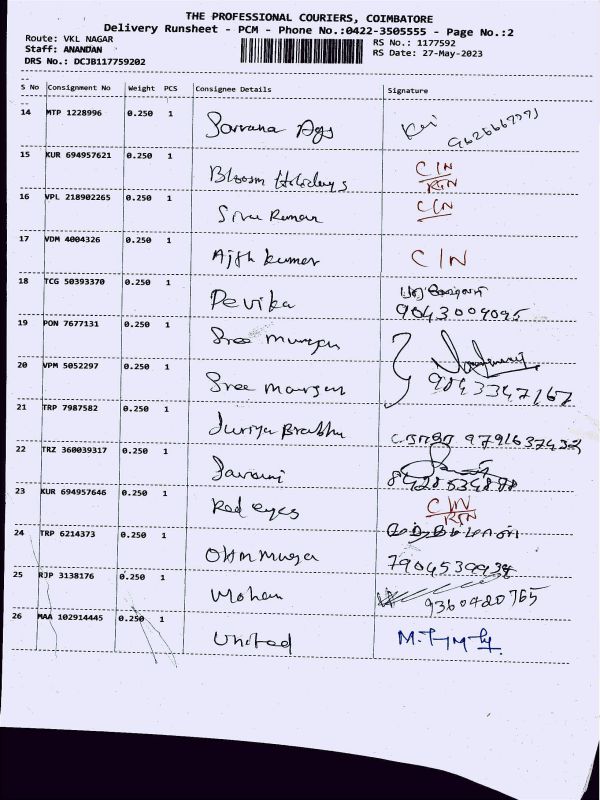 THE PROFESSIONAL COURIERS, COIMBATORE
Delivery Runsheet - PCM - Phone No.:0422-3505555 - Page No.:2
Route: VKL NAGAR
RS No.: 1177592
Staff: ANANDAN
RS Date: 27-May-2023
DRS No.: DCJB117759202
S No Consignment No Weight PCS Consignee Details Signature
14 MTP 1228996 0.250 1 Sarvana Ags
15 KUR 694957621 0.250 1 Bloosm Holidays C/N RTN
16 VPL 218902265 0.250 1 Siva Kumar C/N
17 VDM 4004326 0.250 1 Ajth kumar C/N
18 TCG 50393370 0.250 1 Devika 9043009095
19 PON 7677131 0.250 1 Sree murgan
20 VPM 5052297 0.250 1 Sree murgan 9843347167
21 TRP 7987582 0.250 1 Suriya Brabhu
22 TRZ 360039317 0.250 1 8428534898
23 KUR 694957646 0.250 1 Red eyes C/N RTN
24 TRP 6214373 0.250 1 Ohm muga 7904539938
25 RJP 3138176 0.250 1 Mohan 9360420765
26 MAA 102914445 0.250 1 United